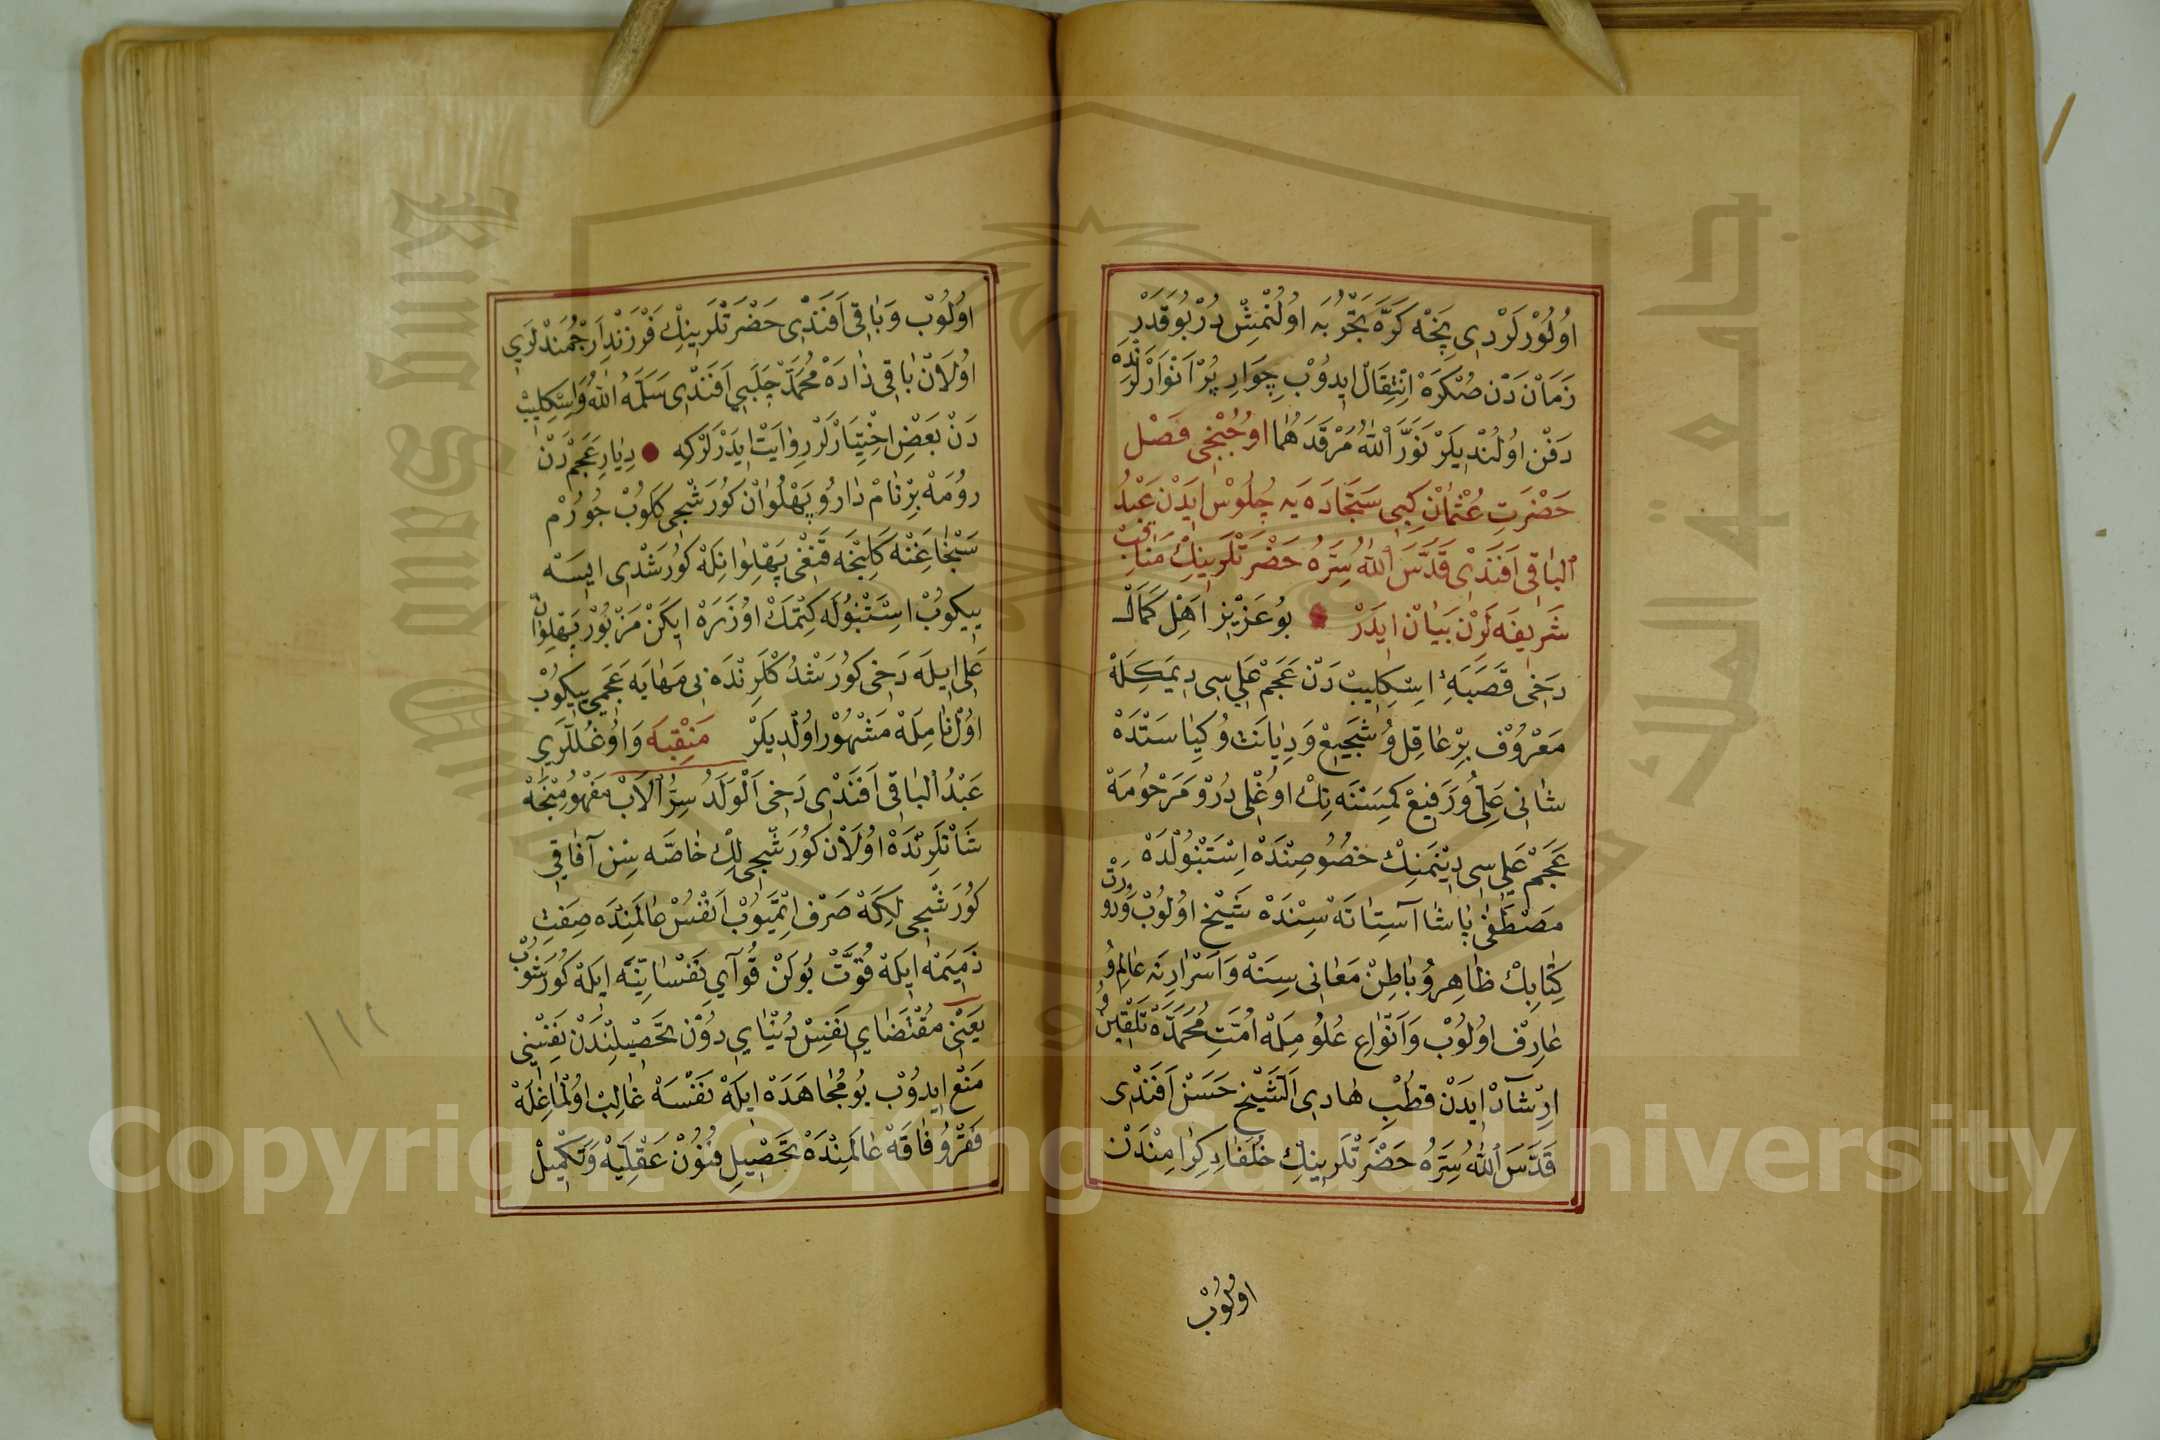 اُولُوْرلَرْدِى نِجَه كَرَّه تَجْرُبَه اُولُنْمِشْ دُرْ بُو قَدَرْ
زَمَانْ دَنْ صُكْرَه اِنْتِقَالْ ايدُوْبْ جِوَارِ پُرْ اَنْوَارْلَرَنْدَه
دَفْن اُولُنْدِيلَرْ نَوَّرَ اللّٰهُ مَرْقَدَهُمَا اوُچُنْجِى فَصْل
حَضْرَتِ عُثْمَانْ كِبِى سَجَّادَه يَه جُلُوسْ ايدَنْ عَبْدُ
الْبَاقِى اَفَنْدِى قَدَّسَ اللّٰهُ سِرَّهُ حَضْرَتْلَرِينِكْ مَنَاقِبْ
شَرِيفَه لَرِنْ بَيَانْ ايدَرْ بُو عَزِيزِ اَهْلِ كَمَالْ
دَخِى قَصَبَهٔ اِسْكِلِيبْ دَنْ عَجَمْ عَلِى سِى دِيمَكِلَه
مَعْرُوْف بِرْ عَاقِل وُ شَجِيعْ وَ دِيَانَتْ وُ كِيَاسَتْدَه
شَانِى عَلِى وُ رَفِيعْ كِمِسَنَه نِكْ اوُغْلِى دُرْ وَ مَرْحُومَه
عَجَمْ عَلِى سِى دِيْنَمَنِكْ خُصُوصِنْدَه اِسْتَنْبُولْدَه
مُصْطَفٰى پَاشَا آسِتَانَه سِنْدَه شَيْخ اوُلُوبْ
كِتَابِكْ ظَاهِر وُ بَاطِنْ مَعَانِى سِنَه وَ اَسْرَارِنَه عَالِم وُ
عَارِفْ اوُلُوبْ وَ اَنْوَاعِ عُلُومِلَه اُمَّتِ مُحَمَّدَه تَلْقِين وُ
اِرْشَادْ ايدَنْ قُطْبِ هَادِى اَلشَّيْخ حَسَنْ اَفَنْدِى
قَدَّسَ اللّٰهُ سِرَّهُ حَضْرَتْلَرِينِكْ خُلَفَاءِ كِرَامِنْدَنْ
اوُلُوبْ
اوُلُوبْ وَ بَاقِى اَفَنْدِى حَضْرَتْلَرِينِكْ فَرْزَنْدِ اَرْجُمَنْدلَرِى
اوُلَانْ بَاقِى ذَادَه مُحَمَّدْ چَلَبِى اَفَنْدِى سَلَّمَهُ اللّٰهُ وَ اِسْكِلِيبْ
دَنْ بَعْضِ اِخْتِيَارْلَرْ رِوَايَتْ ايدَرْلَرْكِه دِيَارِ عَجَمْ دَنْ
رُومَه بِرْ نَامْدَارُ پَهْلُوَانْ كُورَشْجِى كَلُوبْ چُورُمْ
سَنْجَاغِنَه كَلِنْجَه قَنْغِى پَهْلِوَانِلَه كُورَشْدِى ايسَه
يِيكُوبْ اِسْتَنْبُولَه كِتْمَكْ اوُزَرَه ايكَنْ مَزْبُورْ پَهْلِوَانْ
عَلِى ايلَه دَخِى كُورَشْدُكْلَرِنْدَه بِى مَهَابَه عَجَمِى يِيكُوبْ
اوُلْ نَامِلَه مَشْهُورْ اوُلْدِيلَرْ مَنْقِبَه وَ اوُغُللَرِى
عَبْدُ الْبَاقِى اَفَنْدِى دَخِى اَلْوَلَدُ سِرُّ الْاَبْ مَفْهُومِنْجَه
شَانْلَرِنْدَه اوُلَانْ كُورَشْجِى لِكْ خَاصَّه سِنْ آفَاقِى
كُورَشْجِى لِكَه صَرْف اِتْمَيُوبْ اَنْفُسْ عَالَمِنْدَه صِفَتِ
ذَمِيمَه ايلَه قُوَّتْ بُولَنْ قُوَاىِ نَفْسَانِيَّه ايلَه كُورَشُوبْ
يَعْنِى مُقْتَضَاىِ نَفِسْ دُنْيَاىِ دُوْن تَحْصِيلِنْدَنْ نَفِسْنِى
مَنْعْ ايدُوْبْ بُو مُجَاهَدَه ايلَه نَفْسَه غَالِبْ اوُلْمَاغِلَه
فَقْرُ وُ فَاقَه عَالَمِنْدَه تَحْصِيلِ فُنُونْ عَقْلِيَّه وَ تَكْمِيلْ
١١٢
Copyright © King Saud University